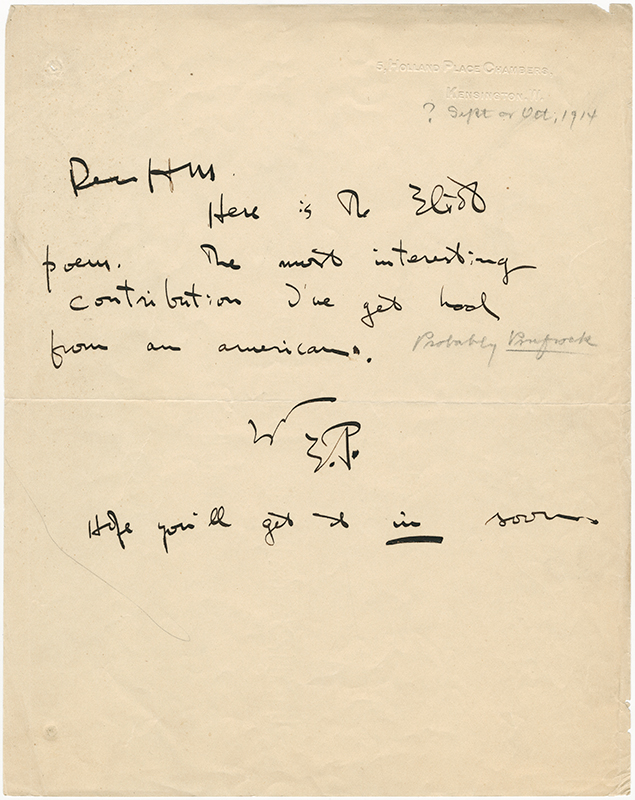 5, HOLLAND PLACE CHAMBERS,
KENSINGTON. W.
? Sept or Oct, 1914
Dear H M.
Here is the Eliot
poem. The most interesting
contribution I've yet had
from an american.
Probably Prufrock
E.P.
Hope you'll get it in soon.